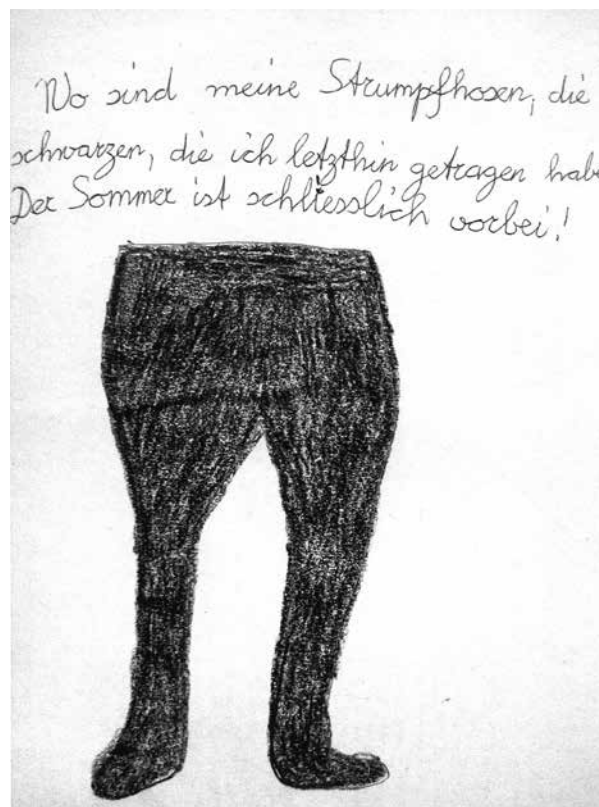 Wo sind meine Strumpfhosen, die
schwarzen, die ich letzthin getragen habe
Der Sommer ist schliesslich vorbei!